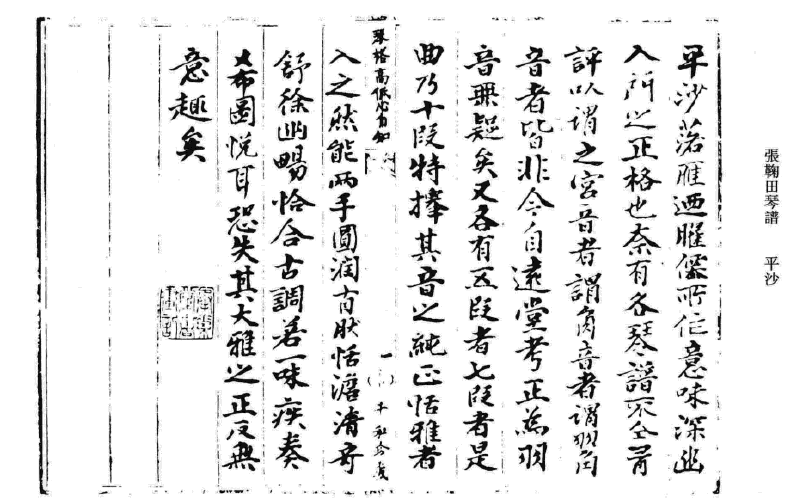 張鞠田琴譜 平沙
平沙落雁迺臞僊所作意味深幽
入門之正格也奈有各琴譜不仝
評以謂之宮音者謂角音者謂羽角
音者皆非今自遠堂考正為羽
音無疑矣又各有五段者七段者是
曲乃十段特擇其音之純正恬雅者
琴格高低心自知
入之然能兩手圓潤有恬澹清奇
舒徐幽暢恰合古調若一味疾奏
希圖悅耳恐失其大雅之正反無
意趣矣